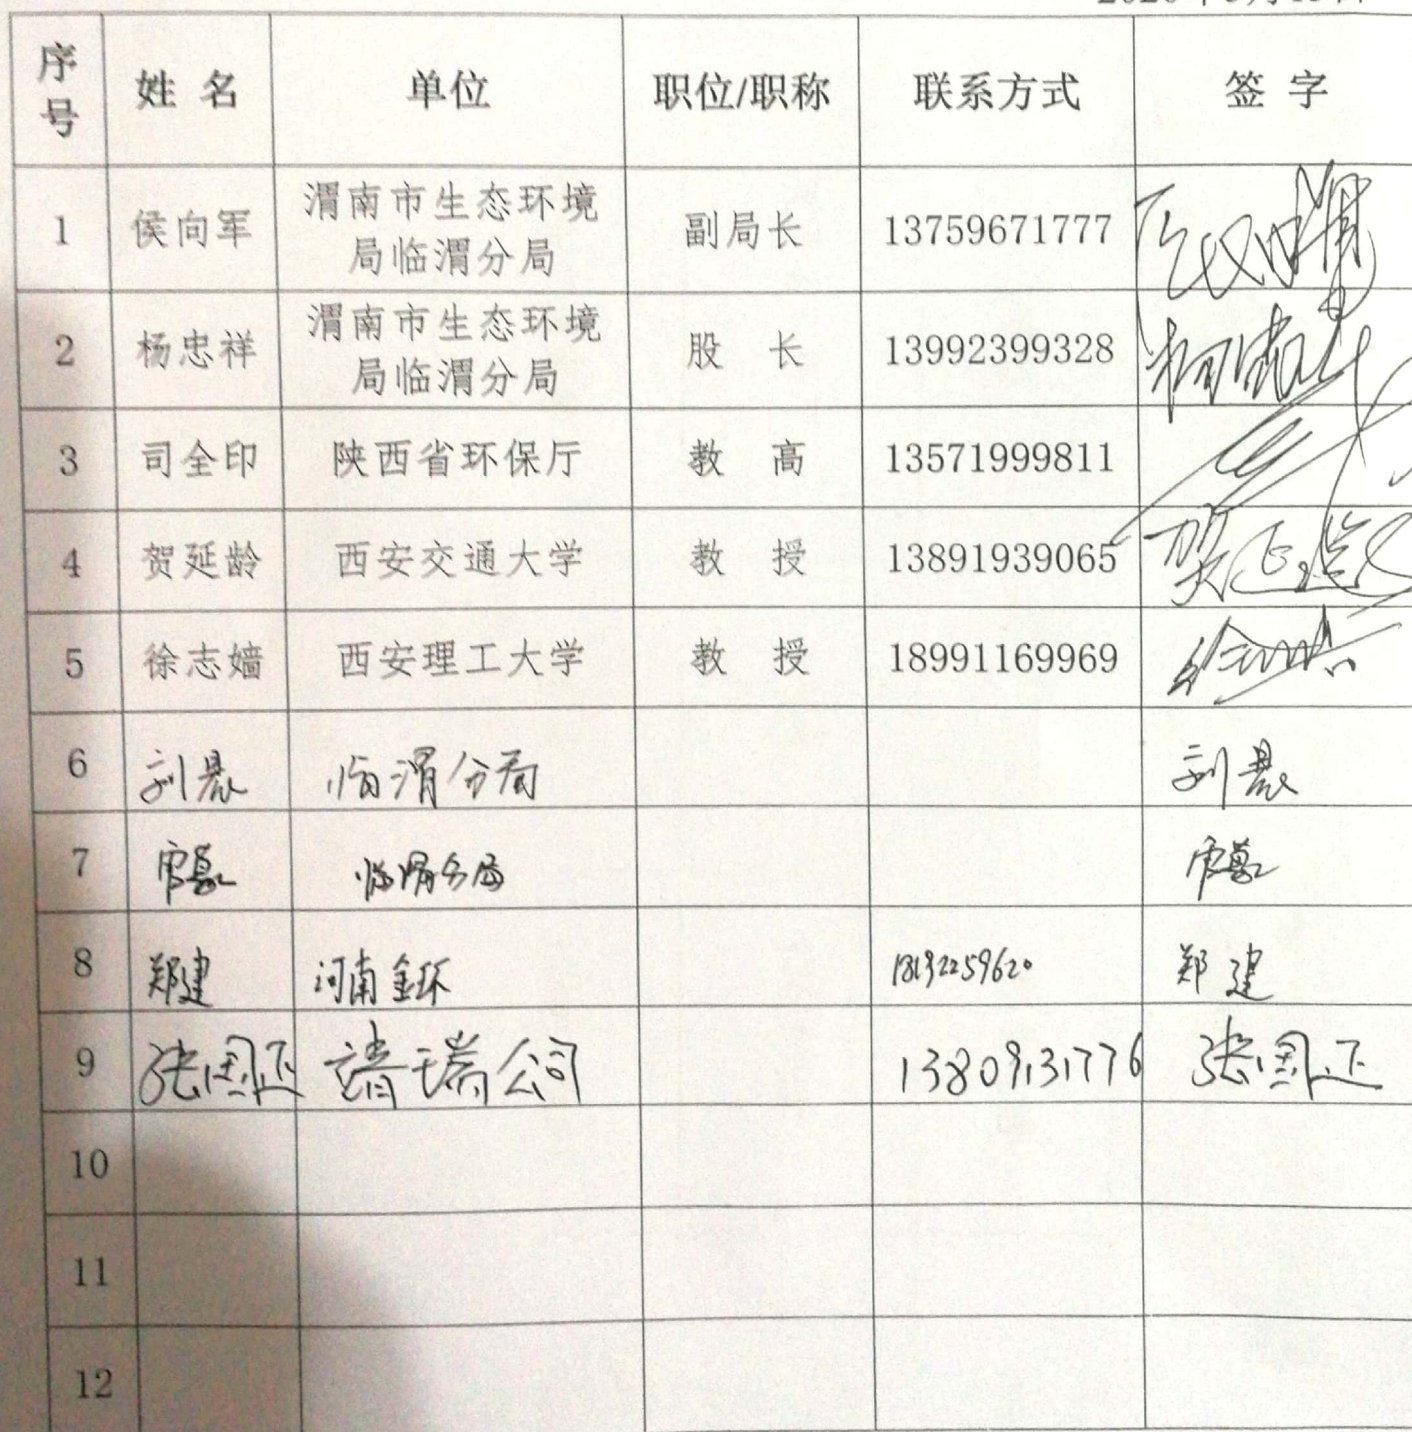 序号 姓 名 单位 职位/职称 联系方式 签 字
1 侯向军 渭南市生态环境局临渭分局 副局长 13759671777
2 杨忠祥 渭南市生态环境局临渭分局 股 长 13992399328
3 司全印 陕西省环保厅 教 高 13571999811
4 贺延龄 西安交通大学 教 授 13891939065 贺延龄
5 徐志嫱 西安理工大学 教 授 18991169969
6 刘晨 临渭分局 刘晨
7 临渭分局
8 郑建 河南金环 郑建
9 张国正 靖瑞公司 13809131776 张国正
10
11
12